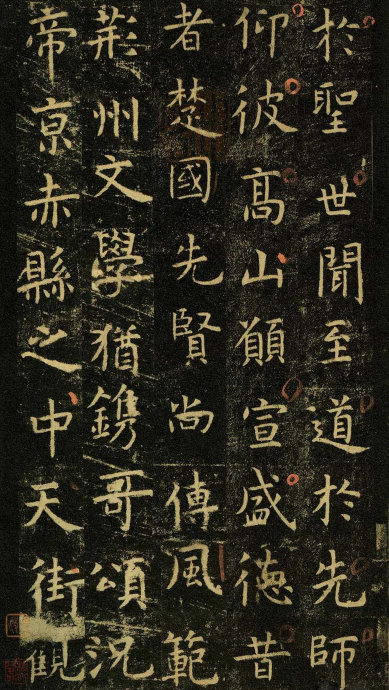 於聖世聞至道於先師
仰彼髙山願宣盛徳昔
者楚國先賢尚傳風範
荊州文學猶鐫哥頌況
帝亰赤縣之中天街觀